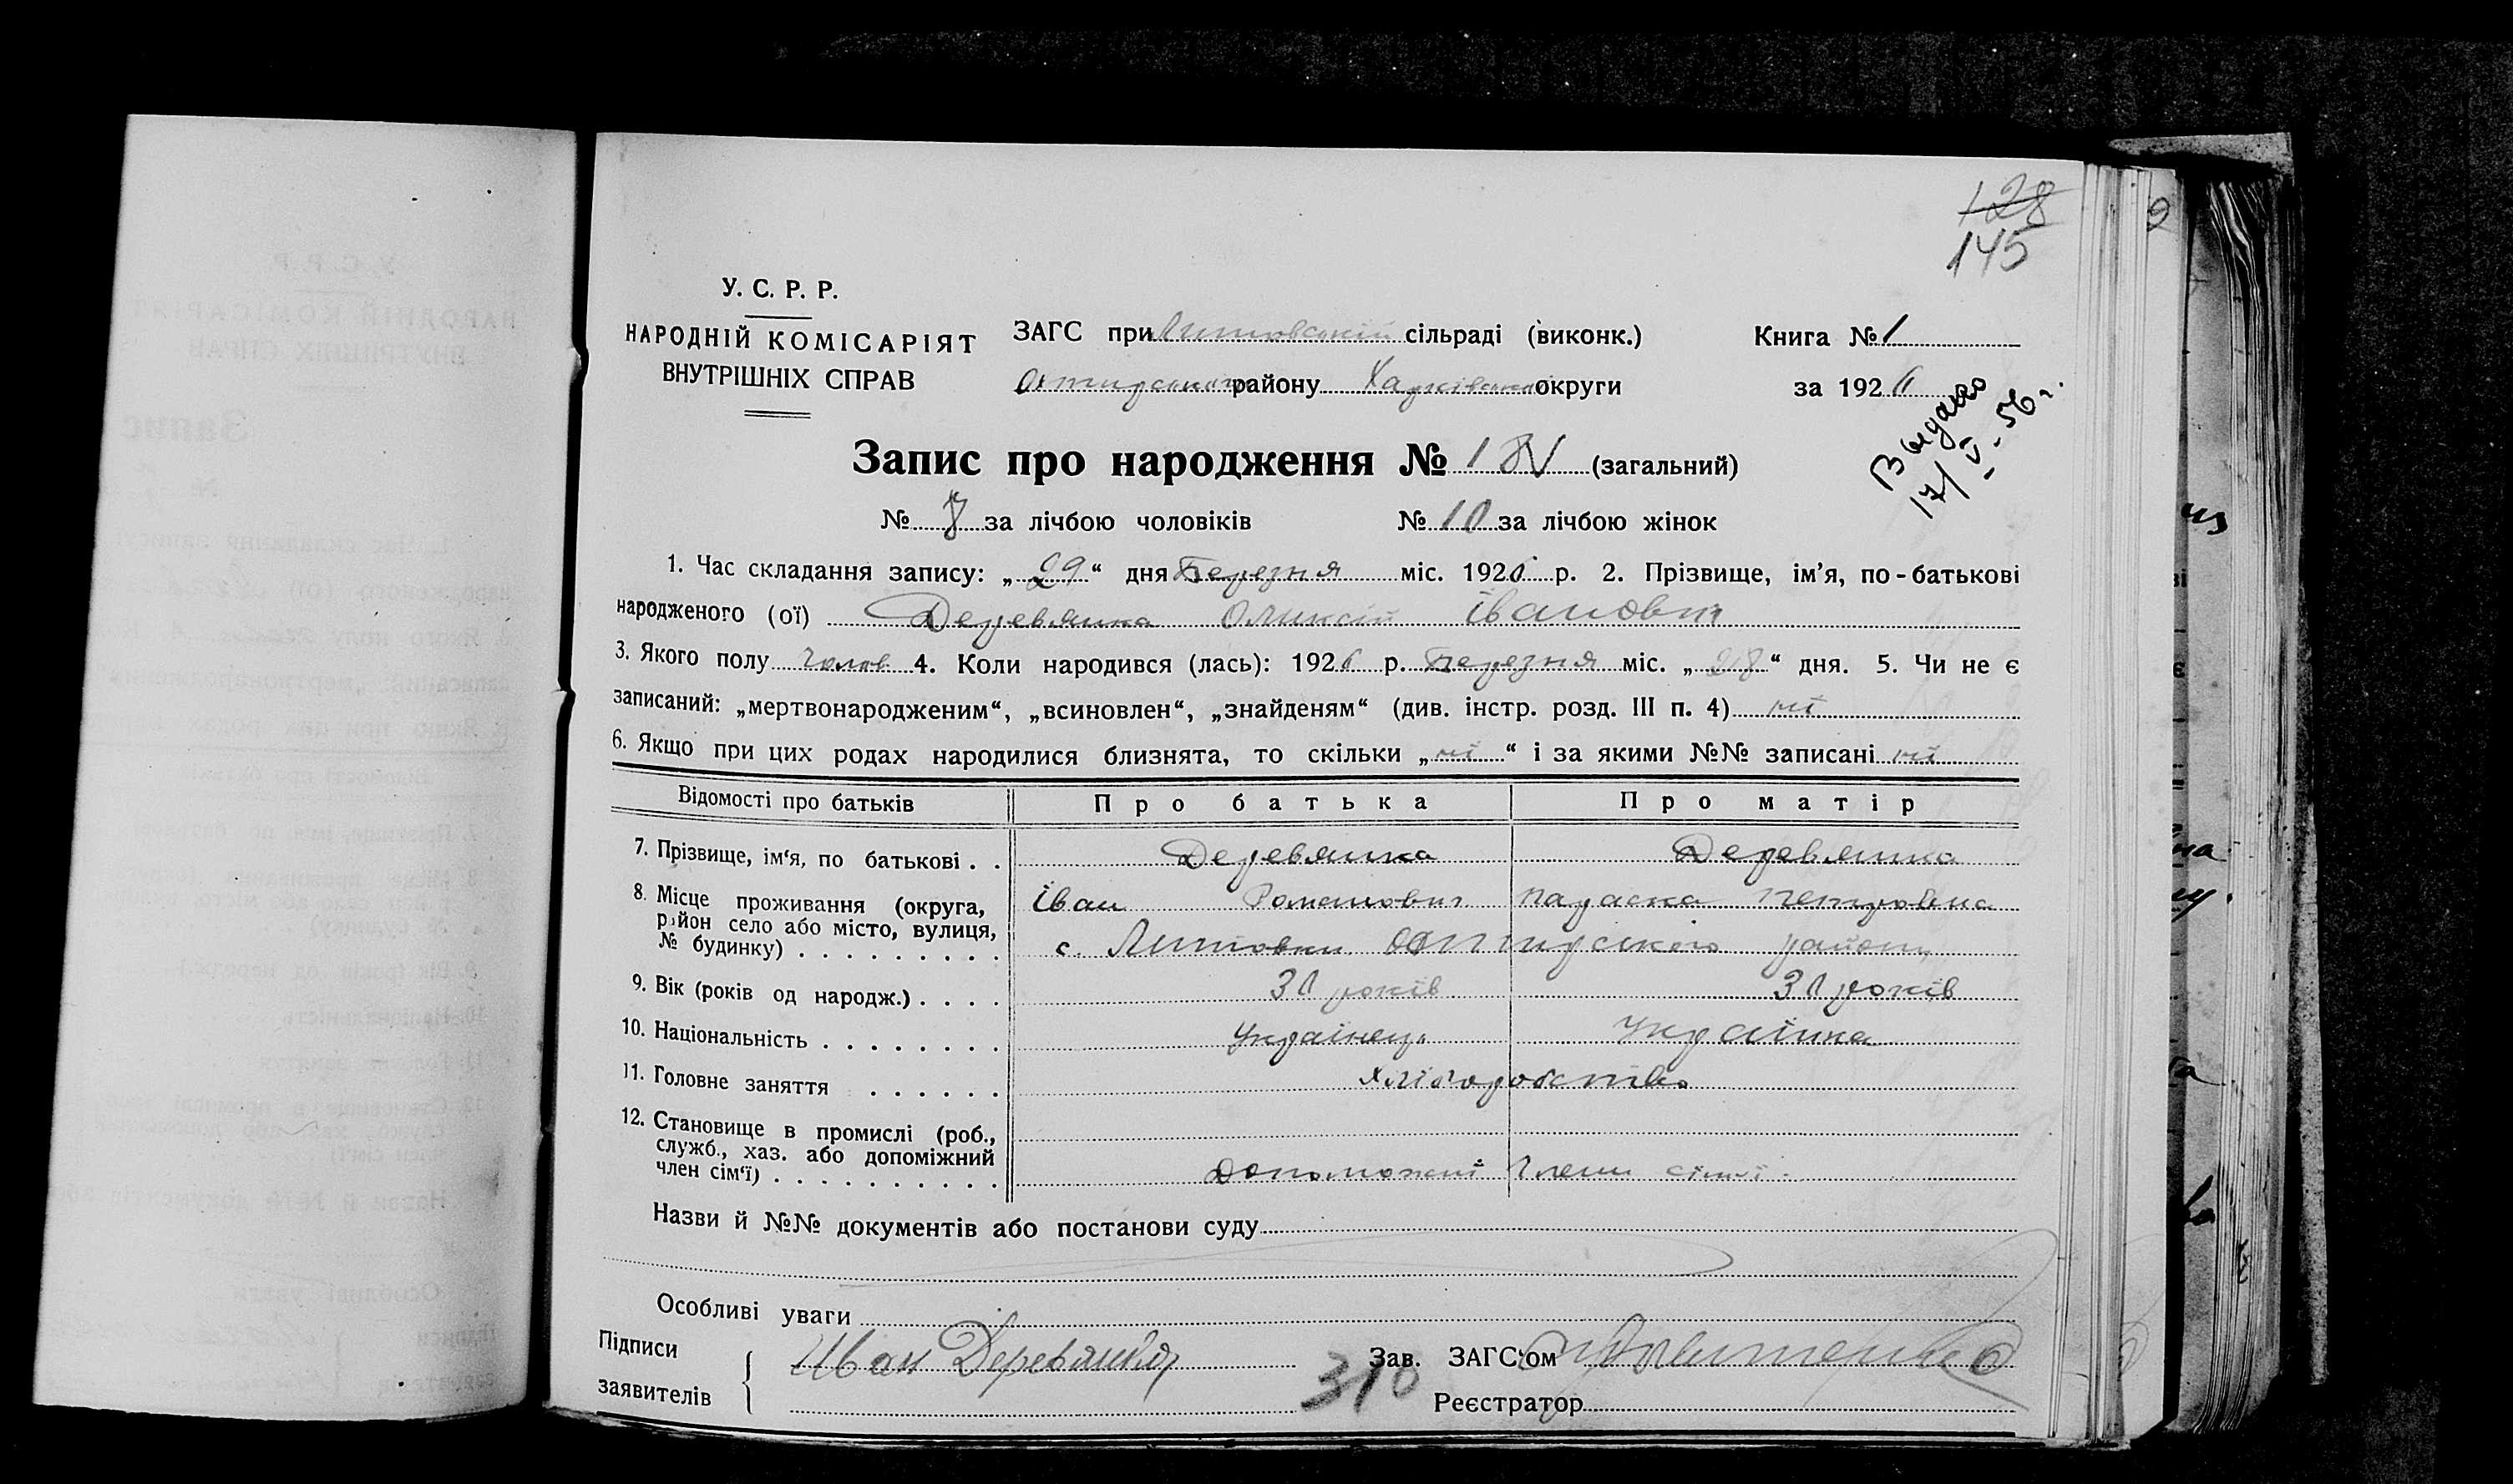 128
145
У. С. Р. Р.
НАРОДНІЙ КОМІСАРІЯТ
ВНУТРІШНІХ СПРАВ
ЗАГС при Литовській сільраді (виконк.)
Охтирського району Харківської округи
Книга № 1
за 1926
Выдано
17/V-56 г.
Запис про народження № 18 (загальний)
№ 8 за лічбою чоловіків № 10 за лічбою жінок
1. Час складання запису: „29“ дня Березня міс. 1926 р. 2. Прізвище, ім'я, по-батькові
народженого (ої) Деревянка Оликсій Івановит
3. Якого полу Чолов 4. Коли народився (лась): 1926 р. Березня міс. „28“ дня. 5. Чи не є
записаний: „мертвонародженим“, „всиновлен“, „знайденям“ (див. інстр. розд. III п. 4) ні
6. Якщо при цих родах народилися близнята, то скільки „ні“ і за якими №№ записані ні
Відомості про батьків Про батька Про матір
7. Прізвище, ім'я, по батькові . . Деревянка Деревянка
Іван Романович Параска Петровна
8. Місце проживання (округа,
район село або місто, вулиця,
№ будинку) . . . . . . . . . с. Литовки Охтирського району
9. Вік (років од народж.) . . . . 30 років 30 років
10. Національність . . . . . . . . Українець Українка
11. Головне заняття . . . . . . Хліборобство
12. Становище в промислі (роб.,
служб., хаз. або допоміжний
член сім'ї) . . . . . . . . . . Допоможні Члени сімї
Назви й №№ документів або постанови суду
Особливі уваги
Підписи
заявителів
Иван Деревянка
310
Зав. ЗАГС'ом
Реєстратор